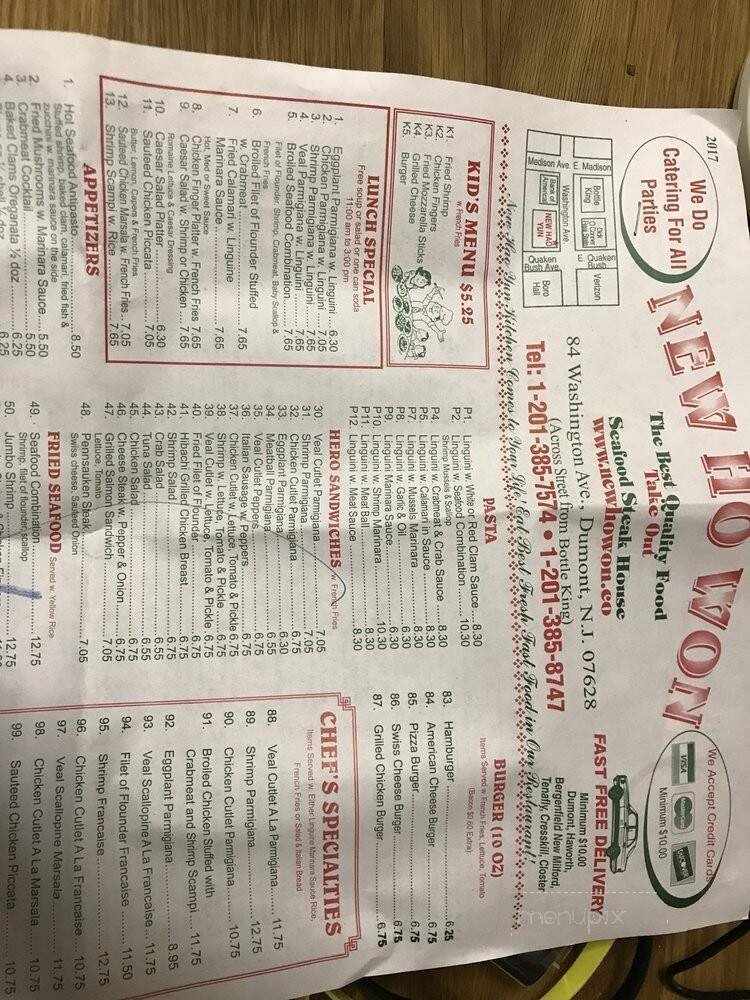 2017
We Do
Catering For All
Parties
NEW HO WON
The Best Quality Food
Take Out
Seafood Steak House
www.newhowon.co
84 Washington Ave., Dumont, N.J. 07628
(Across Street from Bottle King)
Tel: 1-201-385-7574 • 1-201-385-8747
We Accept Credit Cards
VISA
Minimum $10.00
FAST FREE DELIVERY
Minimum $10.00
Dumont, Haworth,
Bergenfield New Milford,
Tenafly, Cresskill, Closter
Medison Ave.
E. Madison
Bottle
King
Bank of
America
Washington Ave.
NEW HAO
YUN
Quaken
Bush Ave.
E. Quaken
Bush
Boro
Hall
Verizon
New Hao Yun Kitchen Comes to Your Life, Eat Best Fresh Fast Food in Our Restaurant!
KID'S MENU $5.25
w. French Fries
K1. Fried Shrimp
K2. Chicken Fingers
K3. Fried Mozzarella Sticks
K4. Grilled Cheese
K5. Burger
LUNCH SPECIAL
Free soup or salad or one can soda
11:00 am to 3:00 pm
1. Eggplant Parmigiana w. Linguini 6.30
2. Chicken Parmigiana w. Linguini 7.05
3. Shrimp Parmigiana w. Linguini 7.65
4. Veal Parmigiana w. Linguini 7.65
5. Broiled Seafood Combination 7.65
Filet of Flounder, Shrimp, Crabmeat, Baby Scallop &
French Fries
6. Broiled Filet of Flounder Stuffed
w. Crabmeat 7.65
7. Fried Calamari w. Linguine
Marinara Sauce 7.65
Hot, Med or Sweet Sauce
8. Chicken Finger Platter w. French Fries 7.65
9. Caesar Salad w. Shrimp or Chicken 7.65
Romaine Lettuce & Caesar Dressing
10. Caesar Salad Platter 6.30
11. Sauteed Chicken Piccata 7.05
Butter, Lemon, Capers & French Fries
12. Sauteed Chicken Marsala w. French Fries 7.05
13. Shrimp Scampi w. Rice 7.65
APPETIZERS
1. Hot Seafood Antipasto 8.50
Stuffed shrimp, baked clam, calamari, fried fish &
zucchini w. marinara sauce on the side
2. Fried Mushrooms w. Marinara Sauce 5.50
3. Crabmeat Cocktail 5.50
4. Baked Clams Oreganata ½ doz 6.25
6.25
PASTA
P1. Linguini w. White of Red Clam Sauce 8.30
P2. Linguini w. Seafood Combination 10.30
Shrimp Mussels & Scallop
P4. Linguini w. Crabmeat & Crab Sauce 8.30
P5. Linguini w. Calamari in Sauce 8.30
P7. Linguini w. Musels Marinara 8.30
P8. Linguini w. Garlic & Oil 6.30
P9. Linguini Marinara Sauce 6.30
P10. Linguini w. Shrimp Marinara 10.30
P11. Linguini w. Meat Ball 8.30
P12. Linguini w. Meat Sauce 8.30
HERO SANDWICHES w. French Fries
30. Veal Cutlet Parmigiana 7.05
31. Shrimp Parmigiana 7.05
32. Chicken Cutlet Parmigiana 6.75
33. Eggplant Parmigiana 6.30
34. Meatball Parmigiana 6.55
35. Veal Cutlet Peppers 6.75
36. Italian Sausage w. Peppers 6.75
37. Chicken Cutlet w. Lettuce, Tomato & Pickle 6.75
38. Shrimp w. Lettuce, Tomato & Pickle 6.75
39. Veal Cutlet w. Lettuce, Tomato & Pickle 6.75
40. Fried Filet of Flounder 6.75
41. Hibachi Grilled Chicken Breast 6.75
42. Shrimp Salad 6.75
43. Crab Salad 6.55
44. Tuna Salad 6.55
45. Chicken Salad 6.75
46. Cheese Steak w. Pepper & Onion 6.75
Lettuce, Tomato
47. Grilled Salmon Sandwich 7.05
48. Pennsauken Steak 7.05
Swiss cheese, Sauteed Onion
FRIED SEAFOOD Served w. Yellow Rice
49. Seafood Combination 12.75
Shrimp, filet of flounder, scallop
50. Jumbo Shrimp 12.75
BURGER (10 OZ)
Items Served w. French Fries, Lettuce, Tomato
83. Hamburger 6.25
84. American Cheese Burger 6.75
85. Pizza Burger 6.75
86. Swiss Cheese Burger 6.75
87. Grilled Chicken Burger 6.75
CHEF'S SPECIALTIES
Items Served w. Either Linguine Marinara Sauce Rice,
French Fries or Salad & Italian Bread
88. Veal Cutlet A La Parmigiana 11.75
89. Shrimp Parmigiana 12.75
90. Chicken Cutlet Parmigiana 10.75
91. Broiled Chicken Stuffed with
Crabmeat and Shrimp Scampi 11.75
92. Eggplant Parmigiana 8.95
93. Veal Scallopine A La Francaise 11.75
94. Filet of Flounder Francaise 11.50
95. Shrimp Francaise 12.75
96. Chicken Cutlet A La Francaise 10.75
97. Veal Scallopine Marsala 11.75
98. Chicken Cutlet A La Marsala 10.75
99. Sauteed Chicken Piccata 10.75
menupix